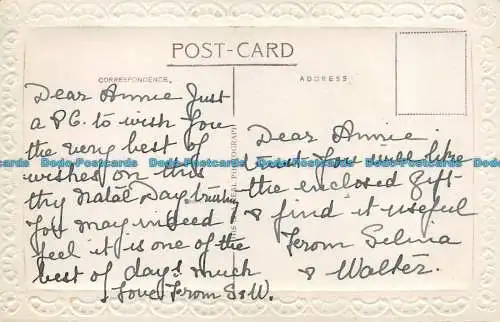 POST-CARD
CORRESPONDENCE.
ADDRESS
Dear Annie Just
a P.C. to wish you
the very best of
wishes on this
thy Natal Day trusting
you may indeed
feel it is one of the
best of days. much
Love From S & W.
REAL PHOTOGRAPH
Dear Annie.
trust you will like
the enclosed Gift
& find it useful
From Selina
& Walter.
Dodo-Postcards Dodo-Postcards Dodo-Postcards Dodo-Postcards